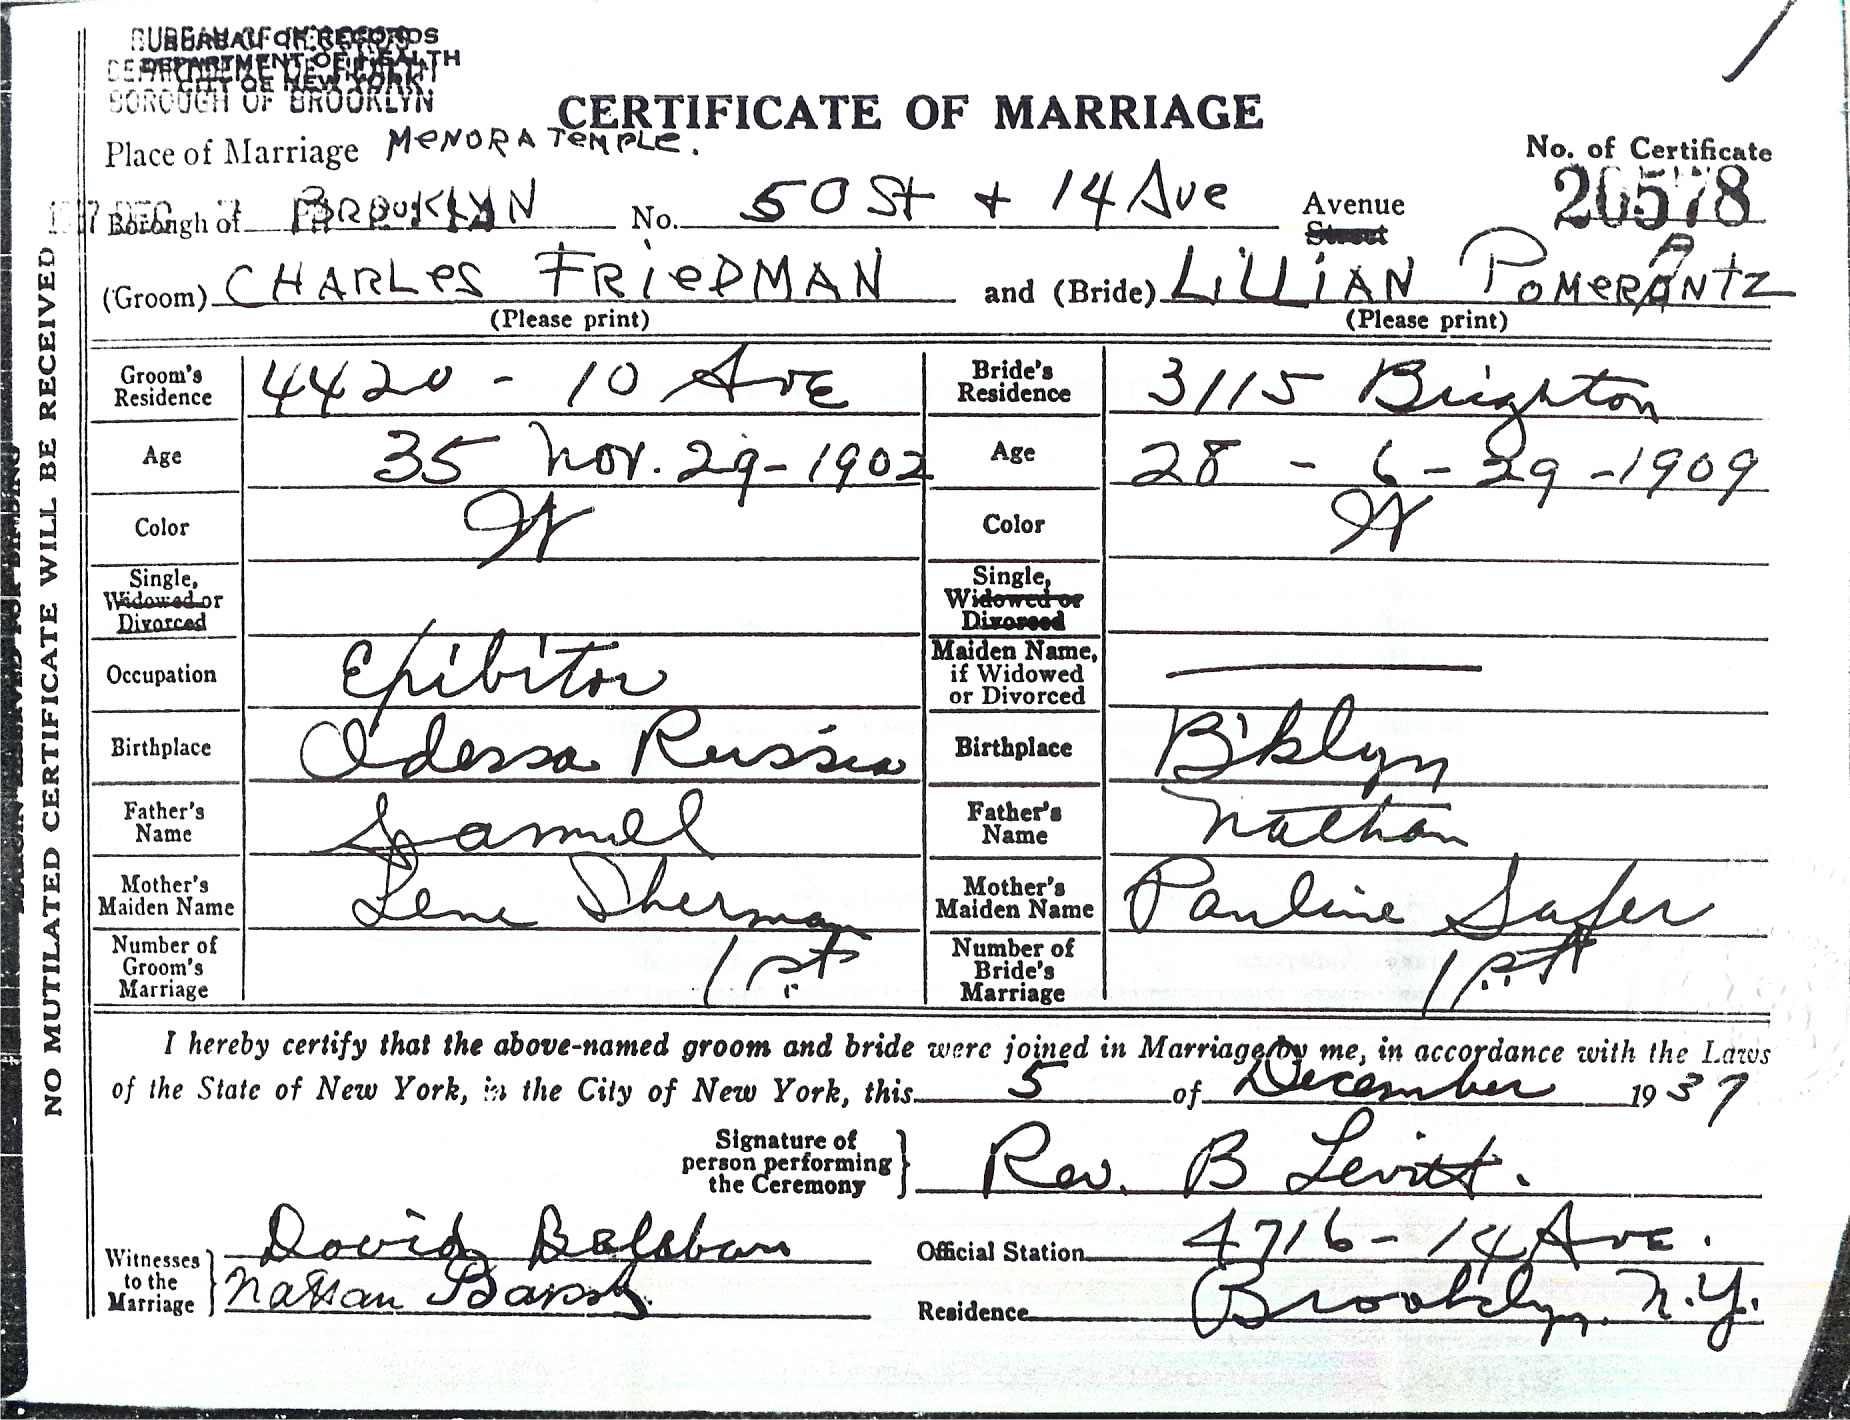 BUREAU OF RECORDS
DEPARTMENT OF HEALTH
CITY OF NEW YORK
BOROUGH OF BROOKLYN
CERTIFICATE OF MARRIAGE
Place of Marriage MENORA TEMPLE.
No. of Certificate
20578
Borough of BROOKLYN No. 50 St + 14 Ave Avenue
Street
(Groom) CHARLES FRIEDMAN and (Bride) LILLIAN POMERANTZ
(Please print) (Please print)
Groom's Residence 4420 - 10 Ave Bride's Residence 3115 Brighton
Age 35 Nov. 29-1902 Age 28 - 6 - 29 - 1909
Color W Color W
Single, Widowed or Divorced Single, Widowed or Divorced
Occupation Epibitor Maiden Name, if Widowed or Divorced
Birthplace Odessa Russia Birthplace B'klyn
Father's Name Samuel Father's Name Nathan
Mother's Maiden Name Lena Sherman Mother's Maiden Name Pauline Safer
Number of Groom's Marriage 1st Number of Bride's Marriage 1st
I hereby certify that the above-named groom and bride were joined in Marriage by me, in accordance with the Laws
of the State of New York, in the City of New York, this 5 of December 1937
Signature of person performing the Ceremony Rev. B Levitt.
Witnesses to the Marriage David Balaban Official Station 4716 - 14 Ave.
Nathan Residence Brooklyn. N.Y.
NO MUTILATED CERTIFICATE WILL BE RECEIVED
MARGIN RESERVED FOR BINDING